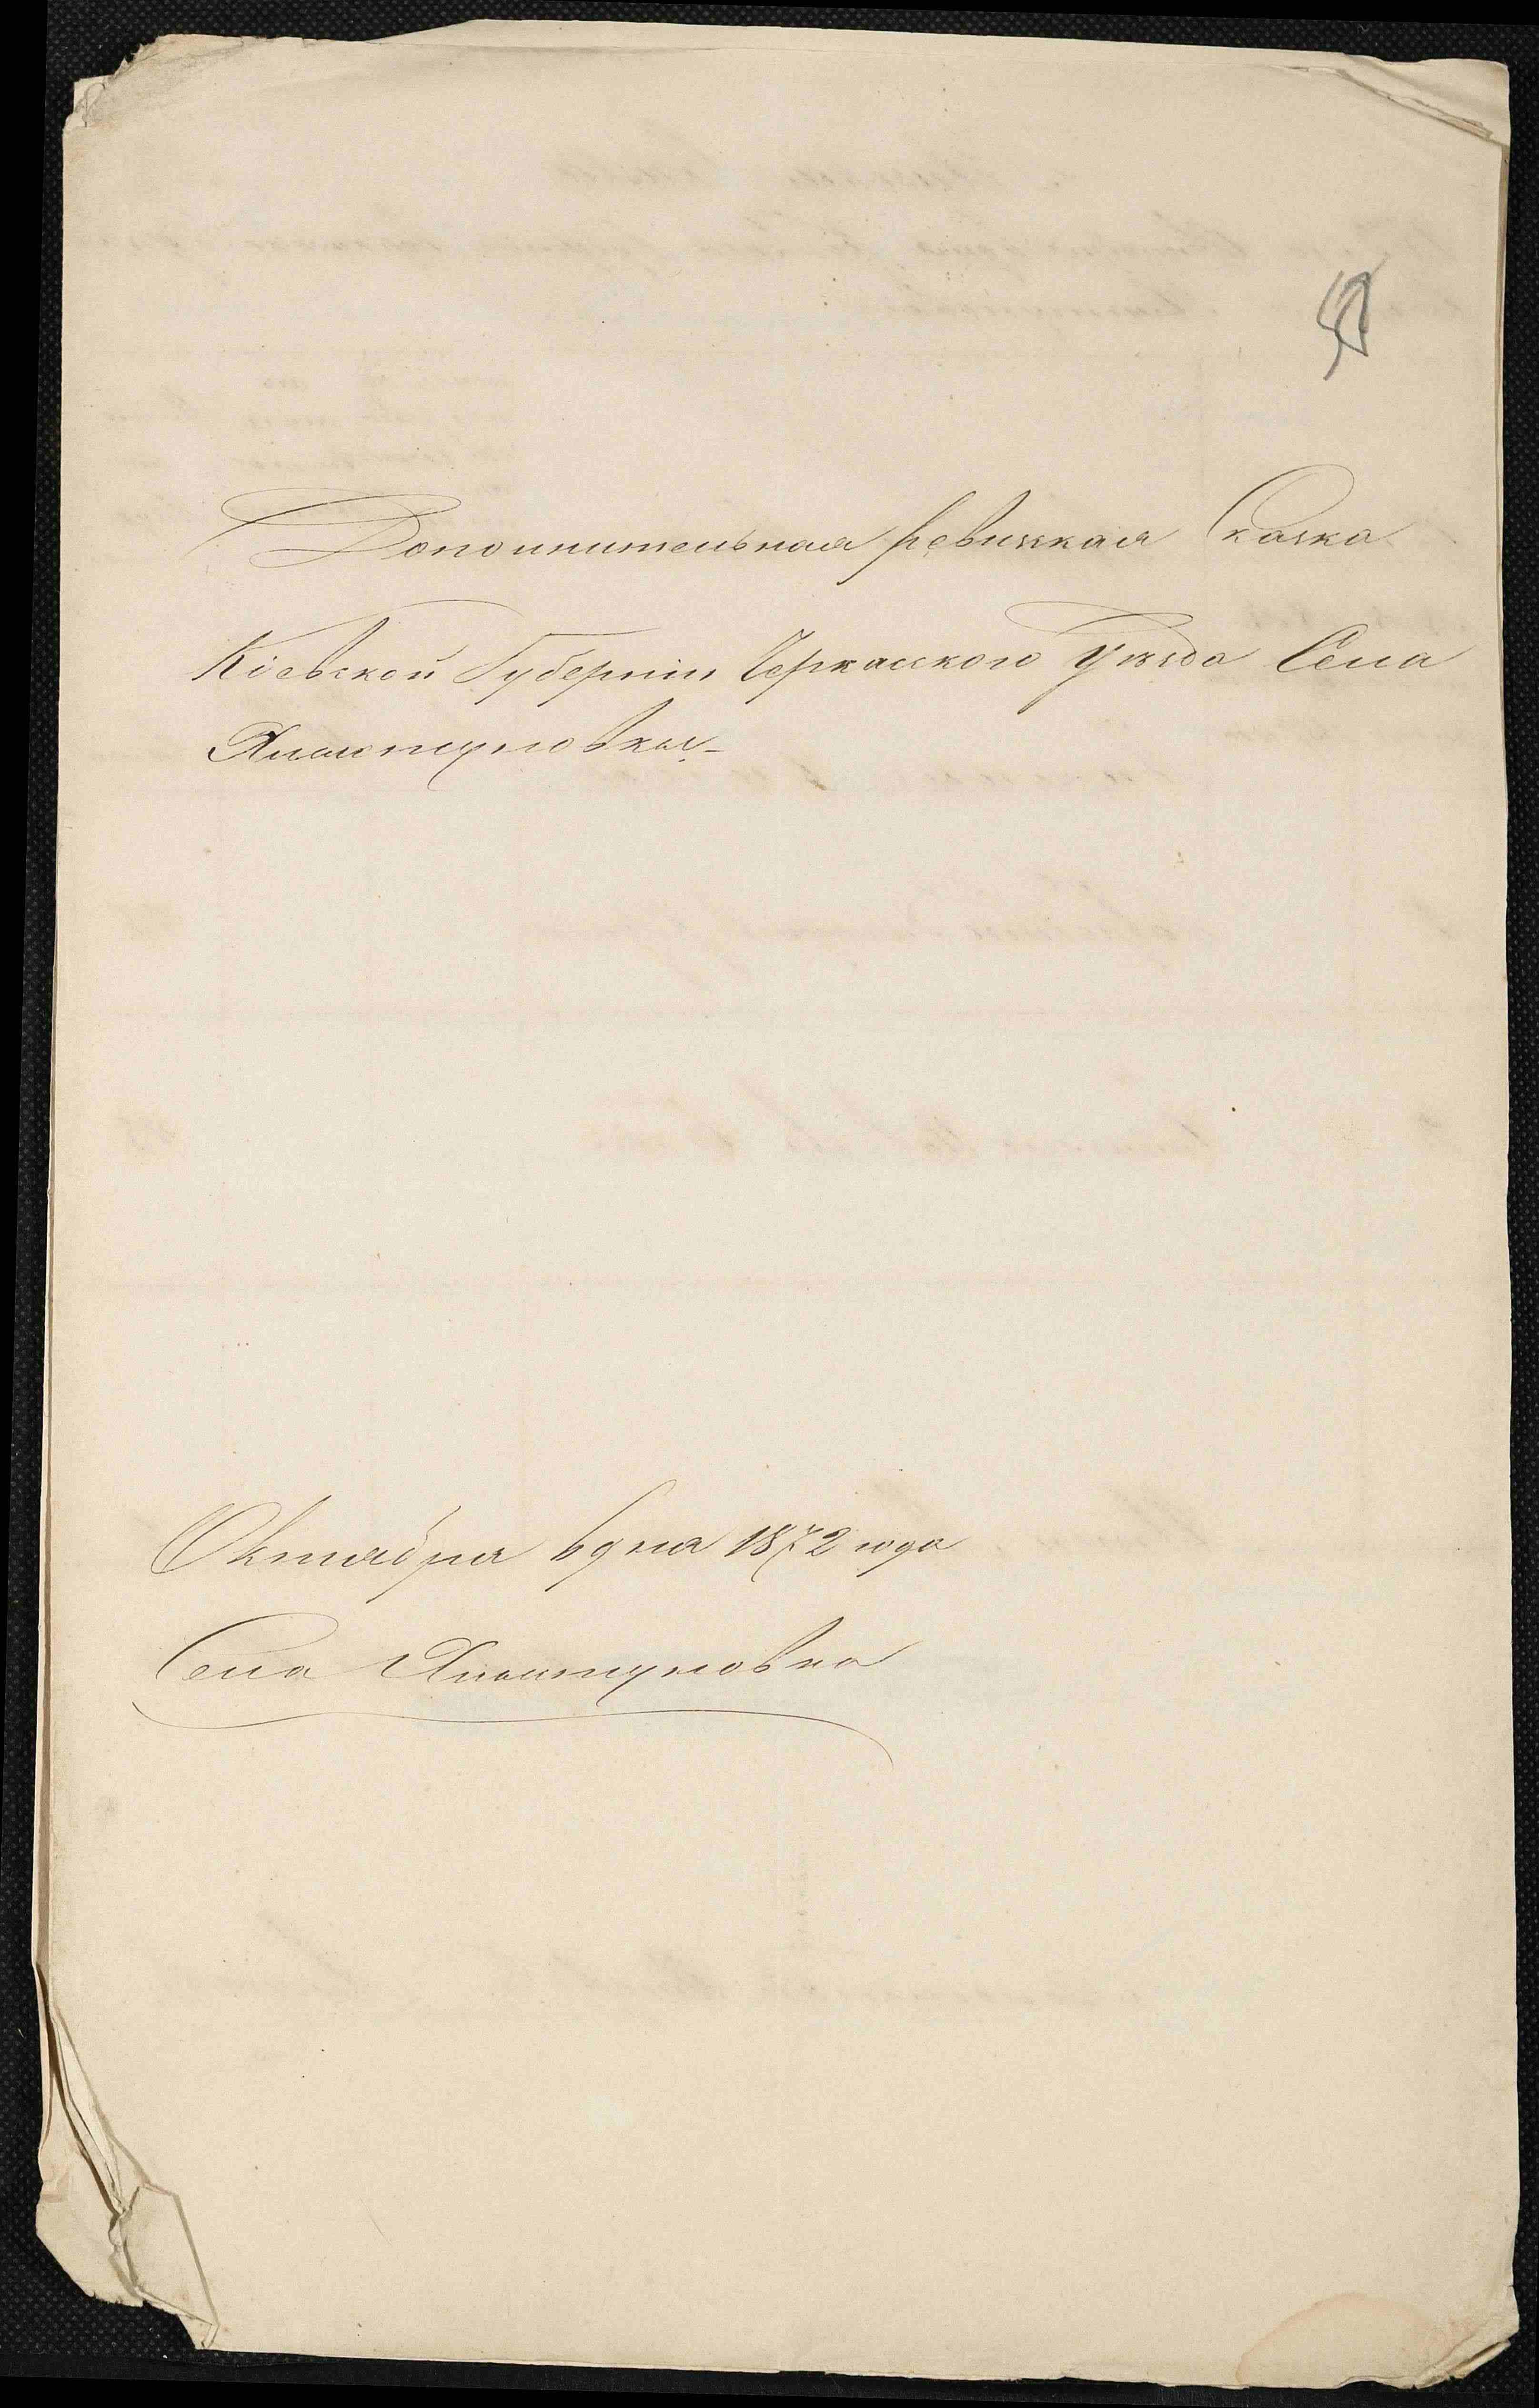 Дополнительная ревизская Сказка
Кіевской Губерніи Черкасского Уѣзда Села
Хлыстуновки.
Октября 6 дня 1872 года
Села Хлыстуновка